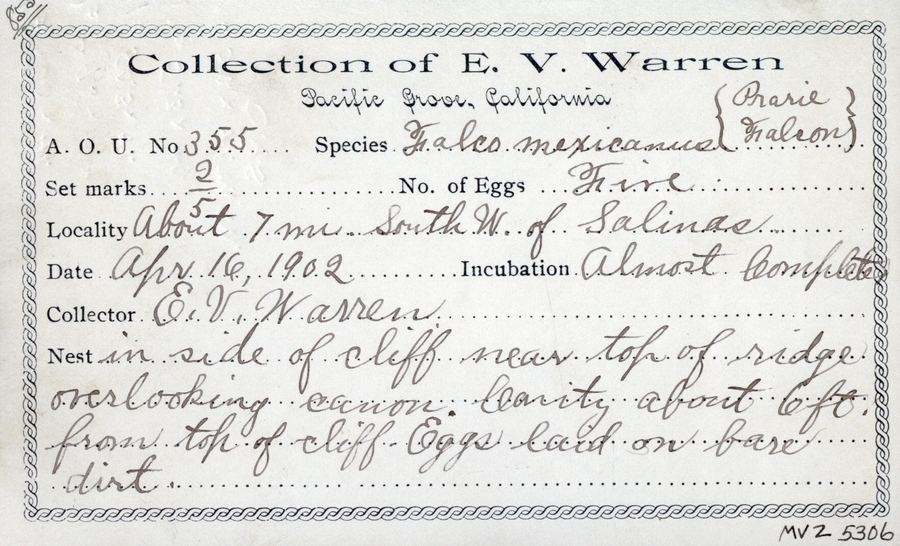 Collection of E. V. Warren
Pacific Grove, California
A. O. U. No. 355 Species Falco mexicanus { Prarie Falcon }
Set marks 2/5 No. of Eggs Five
Locality About 7 mi. South W. of Salinas
Date Apr 16, 1902 Incubation Almost Complete
Collector E. V. Warren
Nest in side of cliff near top of ridge
overlooking canon. Cavity about 6 ft.
from top of cliff. Eggs laid on bare
dirt.
MVZ 5306